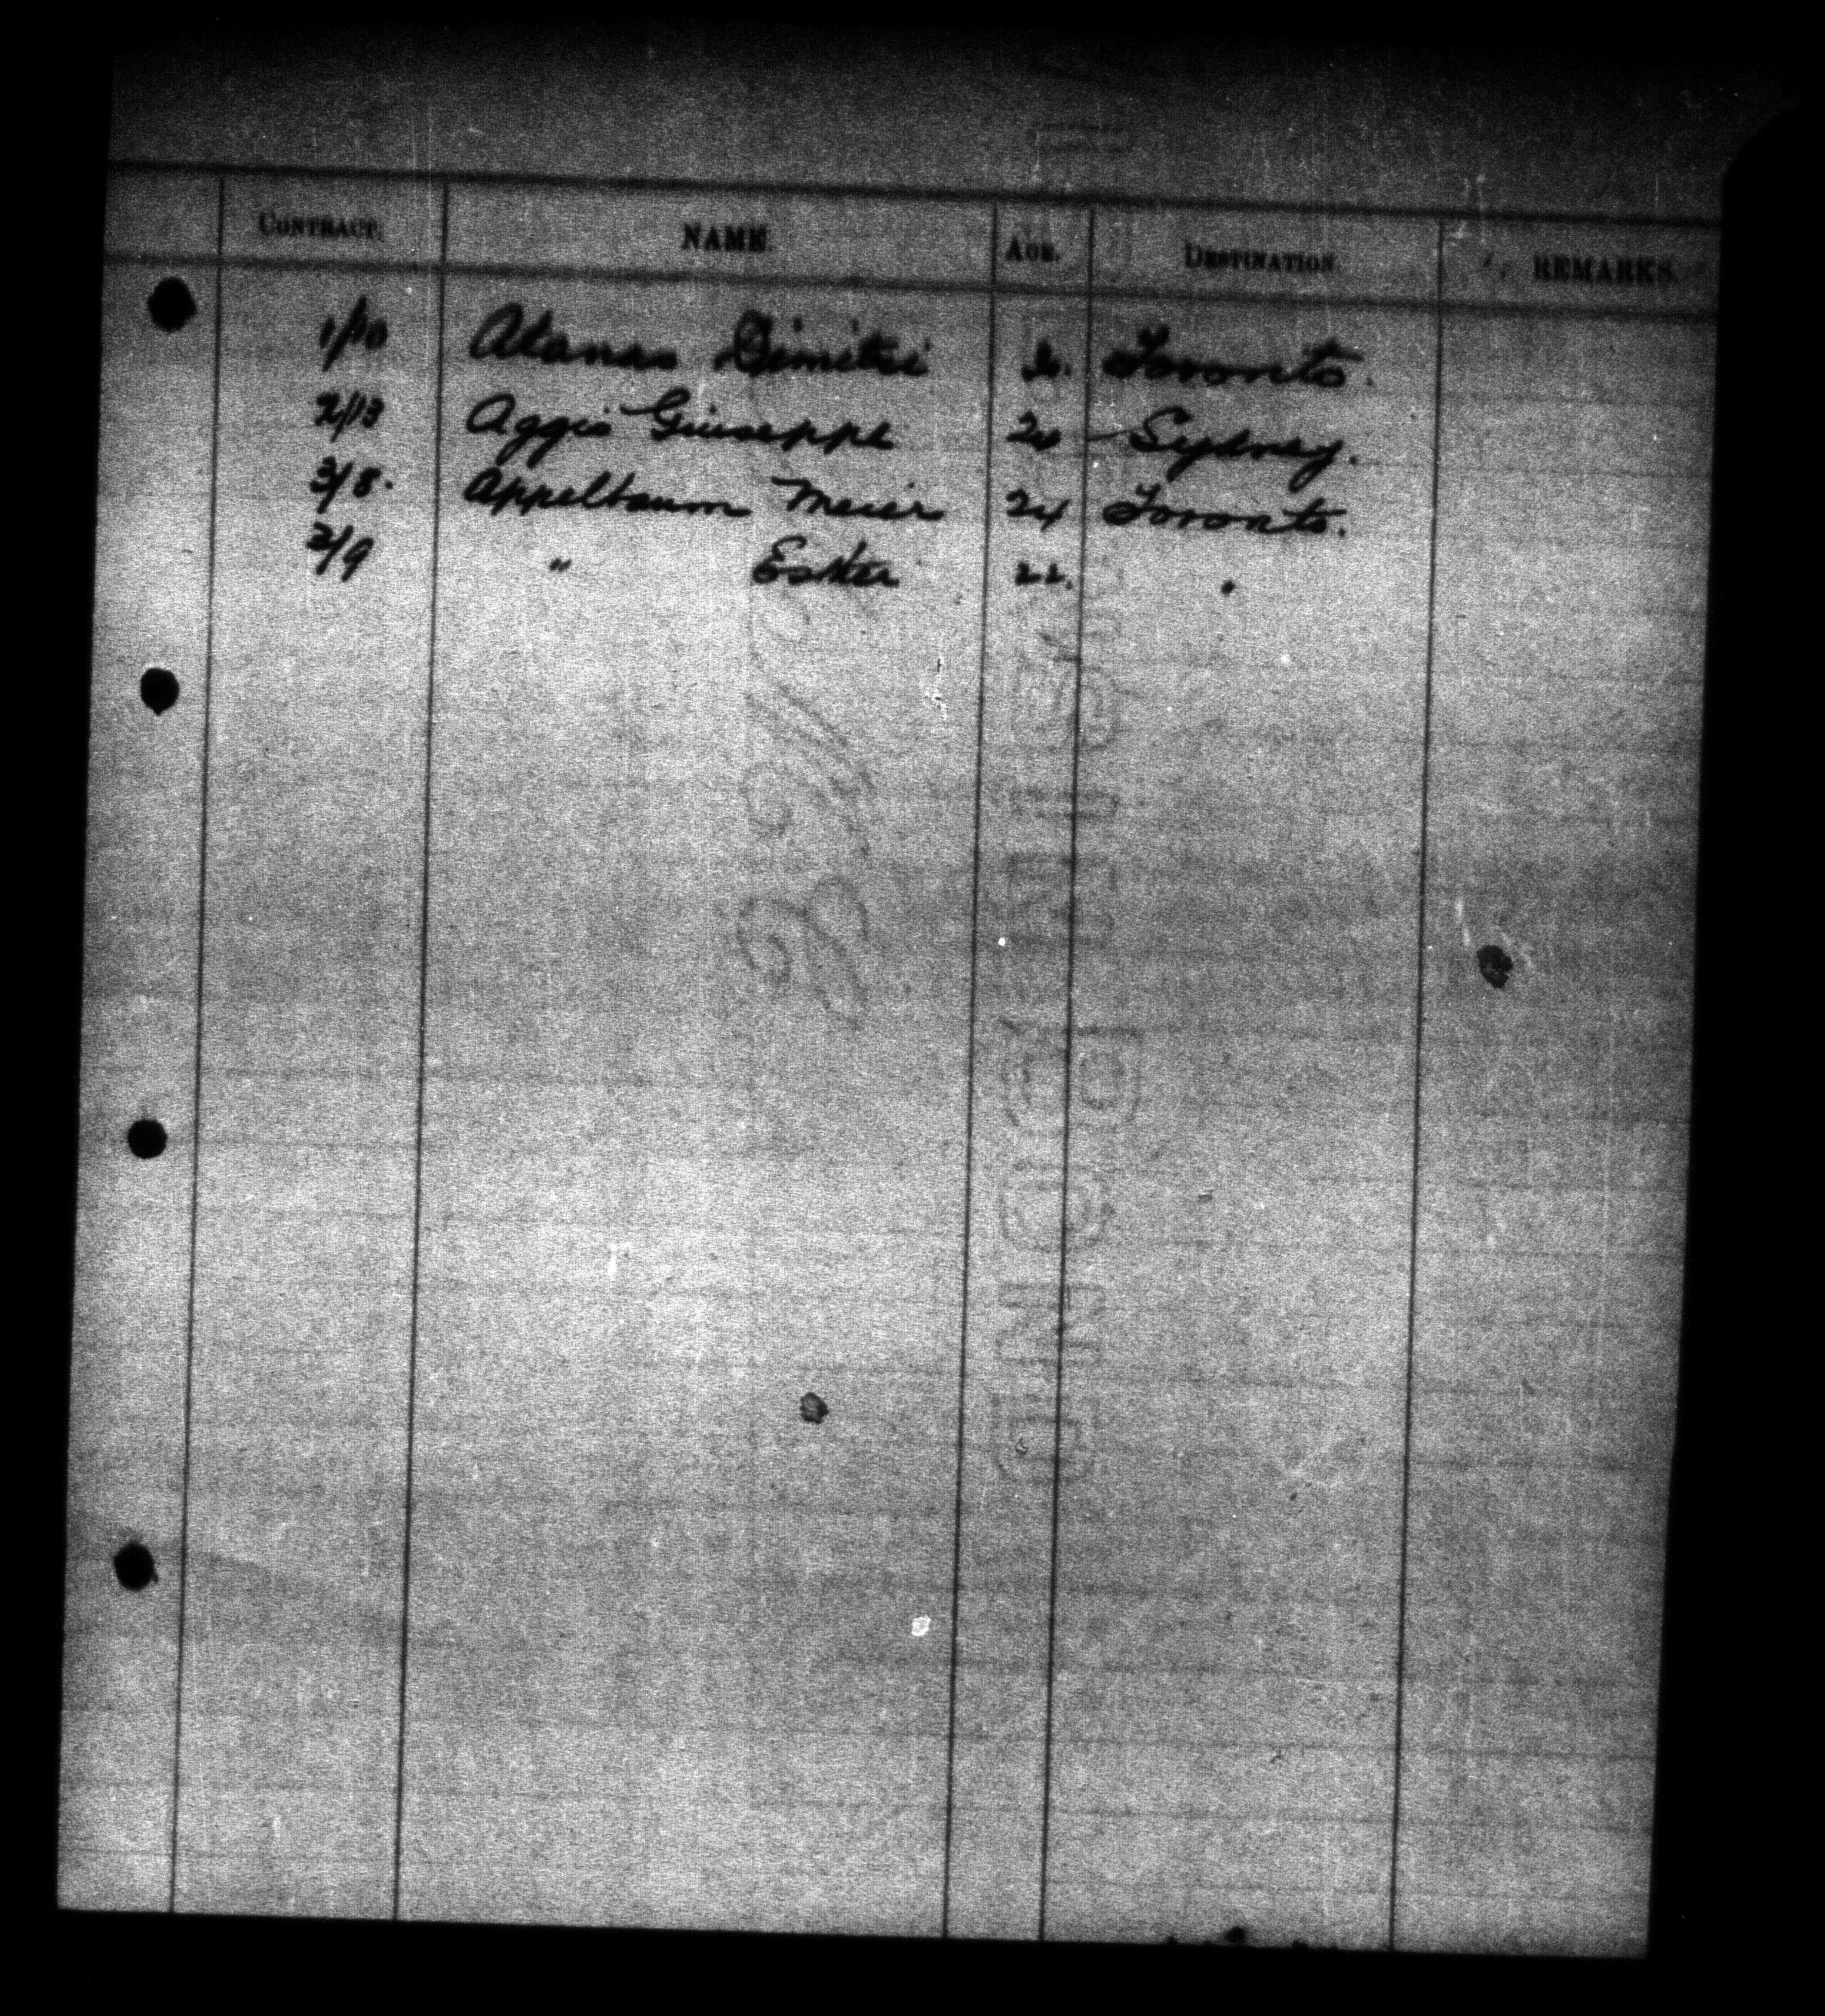 CONTRACT. NAME. AGE. DESTINATION. REMARKS.
1/10 Atanas Dimitri Toronto.
2/13 Aggio Giuseppe 24 Sydney.
3/8. Appelbaum Meier 24 Toronto.
3/9 " Ester 22. "